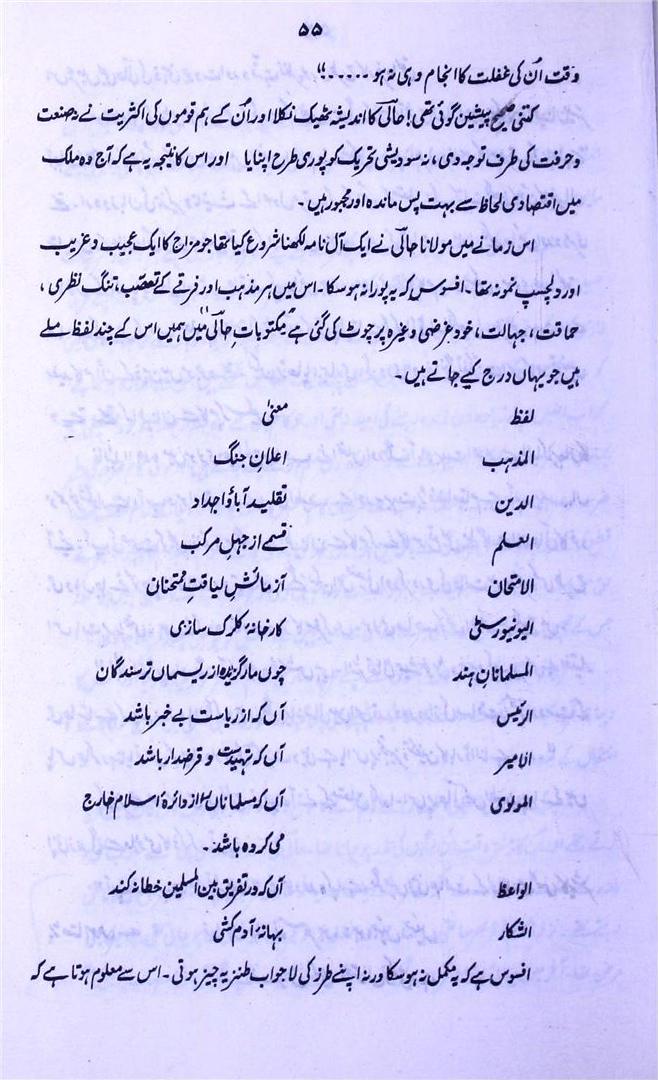 ۵۵
وقت اُن کی غفلت کا انجام وہی نہ ہو ۔۔۔۔۔!"
کتنی صحیح پیشین گوئی تھی! حالیؔ کا اندیشہ ٹھیک نکلا اور اُن کے ہم قوموں کی اکثریت نے نہ صنعت
وحرفت کی طرف توجہ دی، نہ سودیشی تحریک کو پوری طرح اپنایا اور اس کا نتیجہ یہ ہے کہ آج وہ ملک
میں اقتصادی لحاظ سے بہت پس ماندہ اور مجبور ہیں۔
اس زمانے میں مولانا حالیؔ نے ایک آل نامہ لکھنا شروع کیا تھا جو مزاح کا ایک عجیب و غریب
اور دلچسپ نمونہ تھا۔ افسوس کہ یہ پورا نہ ہو سکا۔ اس میں ہر مذہب اور فرقے کے تعصّب، تنگ نظری،
حماقت، جہالت، خود غرضی وغیرہ پر چوٹ کی گئی ہے "مکتوباتِ حالیؔ" میں ہمیں اس کے چند لفظ ملے
ہیں جو یہاں درج کیے جاتے ہیں۔
لفظ معنیٰ
المذہب اعلانِ جنگ
الدین تقلید آباؤ اجداد
العلم قسمے از جہلِ مرکب
الامتحان آزمائشِ لیاقتِ ممتحنان
الیونیورسٹی کارخانۂ کلرک سازی
المسلمانانِ ہند چوں مار گزیدہ از ریسماں ترسندگان
الرئیس آں کہ از ریاست بے خبر باشد
الامیر آں کہ تہیدست و قرضدار باشد
المولوی آں کہ مسلماناں را از دائرۂ اسلام خارج
می کردہ باشد۔
الواعظ آں کہ در تفریق بین المسلمین خطا نہ کند
الشکار بہانۂ آدم کشی
افسوس ہے کہ یہ مکمل نہ ہو سکا ورنہ اپنے طرز کی لاجواب طنزیہ چیز ہوتی۔ اس سے معلوم ہوتا ہے کہ